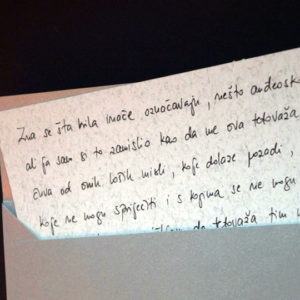 Zna se šta krila inače označavaju, nešto anđeosk
al ja sam si to zamislio kao da me ova tetovaža
čuva od onih loših misli, koje dolaze pozadi,
koje ne mogu spriječiti i s kojima se ne mogu
da tetovaža tim